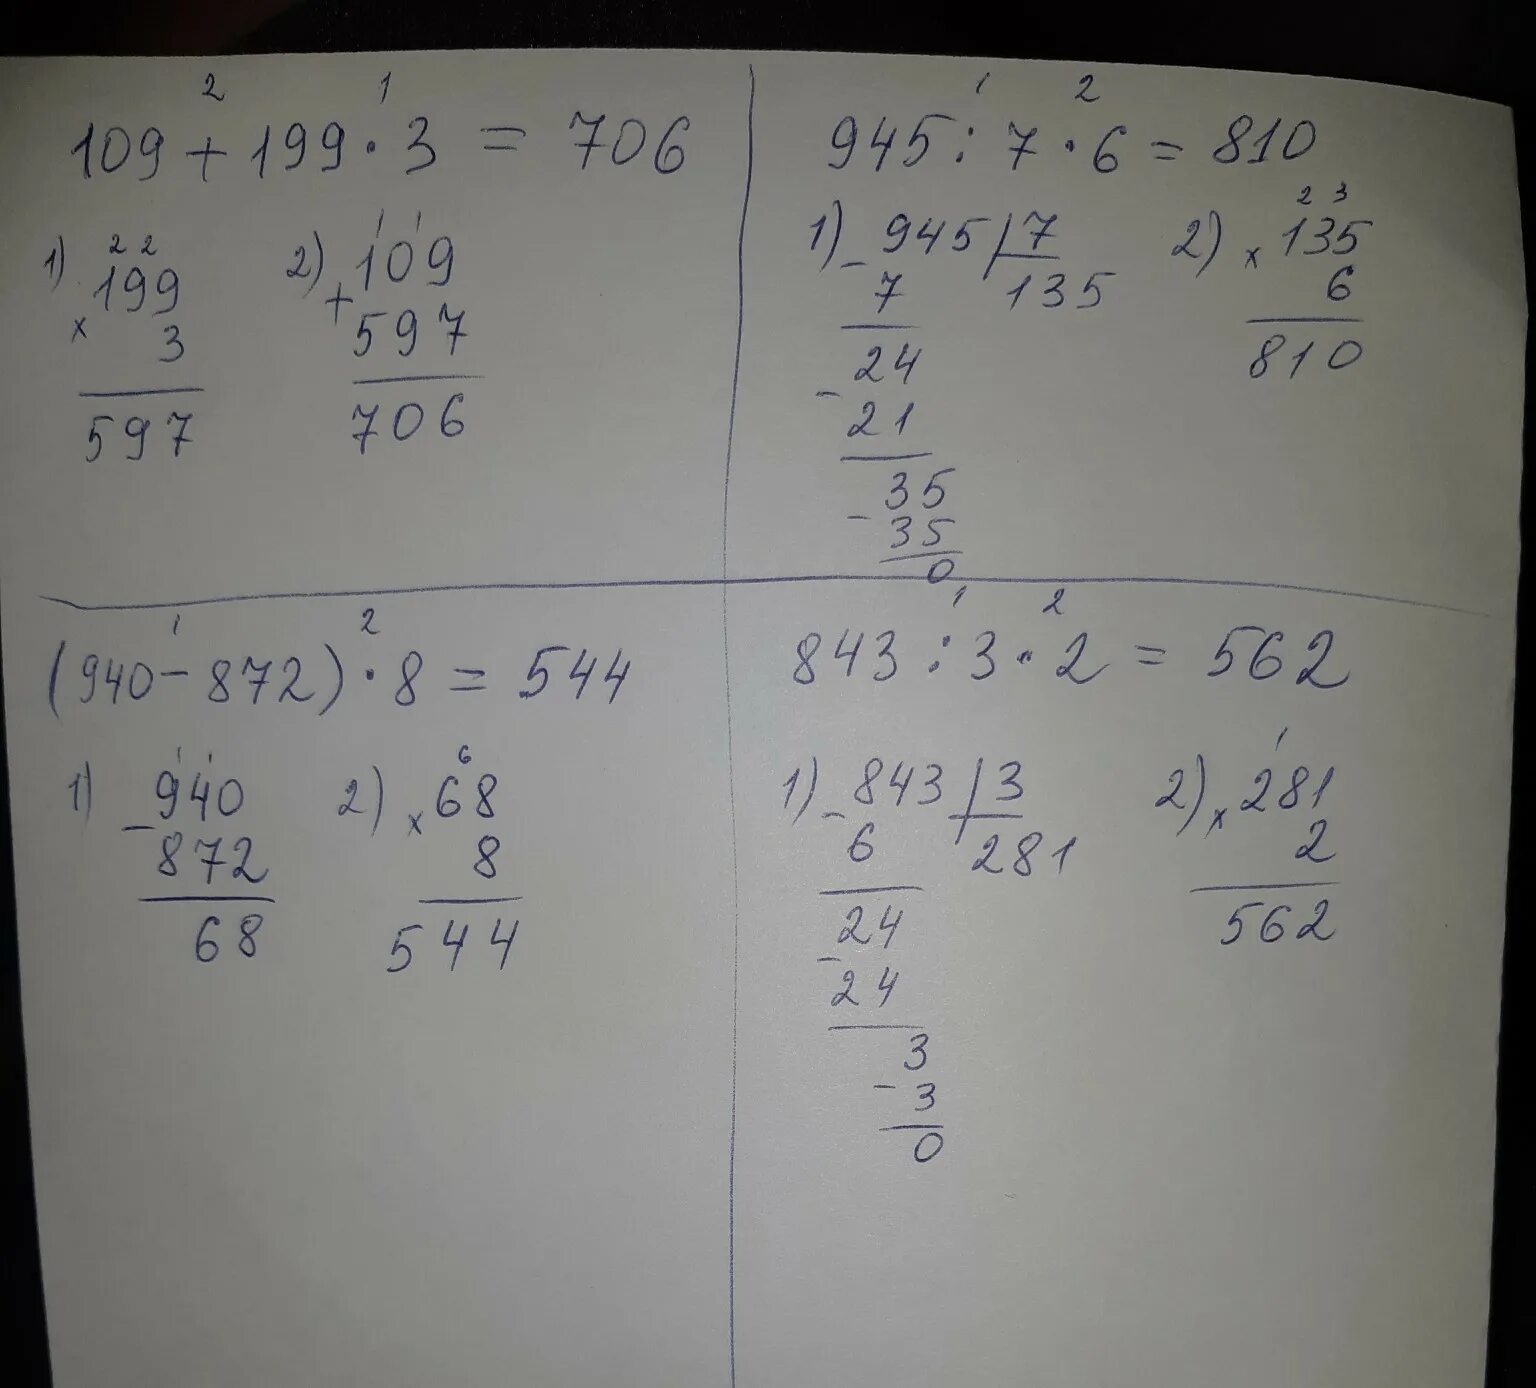 2 1
109 + 199 · 3 = 706
1) 2 2
199
× 3
597
2) 1 1
109
+
597
706
1 2
945 : 7 · 6 = 810
1) - 945 | 7
7 135
24
-
21
35
-
35
0
2) 2 3
× 135
6
810
1 2
(940 - 872) · 8 = 544
1) 1 1
940
-
872
68
2) 6
× 68
8
544
1 2
843 : 3 · 2 = 562
1) - 843 | 3
6 281
24
-
24
3
-
3
0
2) 1
× 281
2
562